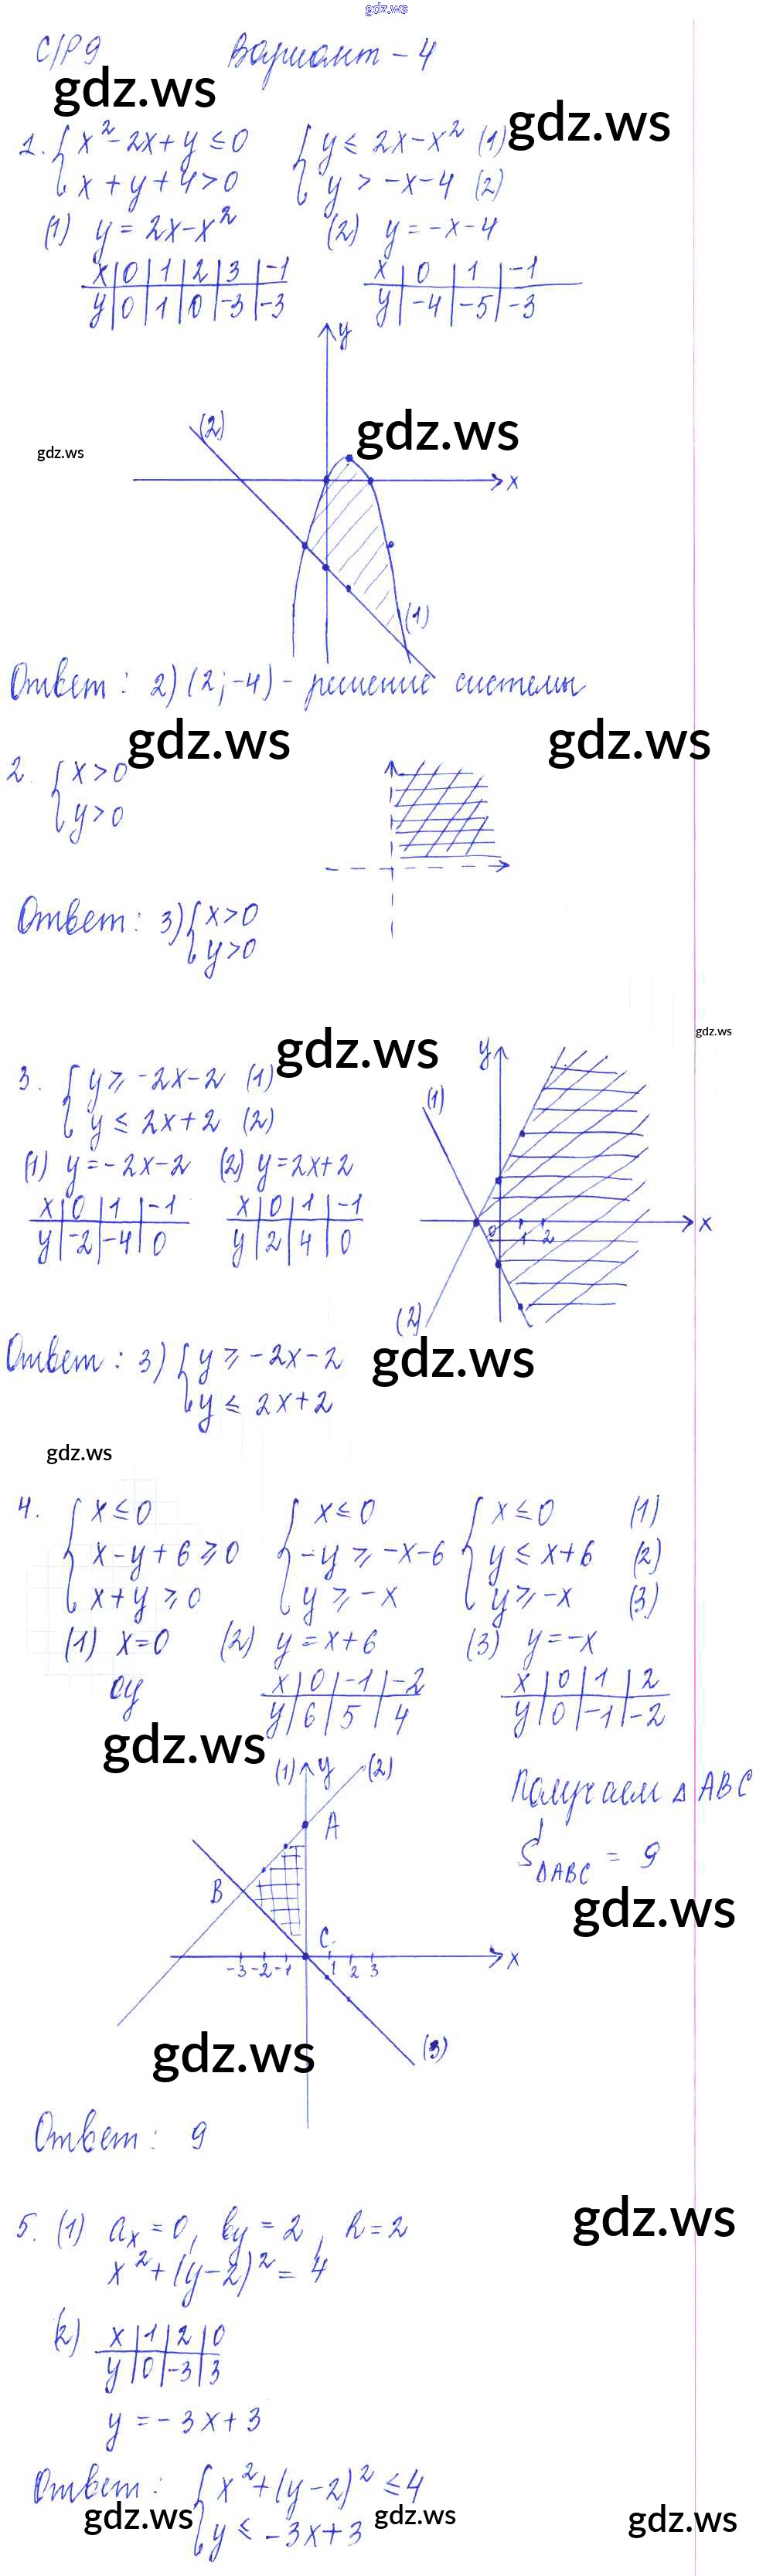 gdz.ws
С/Р 9 Вариант - 4
gdz.ws
gdz.ws
1. { x² - 2x + y ≤ 0 { y ≤ 2x - x² (1)
x + y + 4 > 0 y > -x - 4 (2)
(1) y = 2x - x² (2) y = -x - 4
x | 0 | 1 | 2 | 3 | -1 x | 0 | 1 | -1
y | 0 | 1 | 0 | -3 | -3 y | -4 | -5 | -3
y
(2)
gdz.ws
gdz.ws
x
(1)
Ответ: 2) (2; -4) - решение системы
gdz.ws gdz.ws
2. { x > 0
y > 0
Ответ: 3) { x > 0
y > 0
gdz.ws
gdz.ws
3. { y ≥ -2x - 2 (1)
y ≤ 2x + 2 (2)
(1) y = -2x - 2 (2) y = 2x + 2
x | 0 | 1 | -1 x | 0 | 1 | -1
y | -2 | -4 | 0 y | 2 | 4 | 0
y
(1)
x
0 1 2
(2)
Ответ: 3) { y ≥ -2x - 2
y ≤ 2x + 2
gdz.ws
gdz.ws
4. { x ≤ 0 { x ≤ 0 { x ≤ 0 (1)
x - y + 6 ≥ 0 -y ≥ -x - 6 y ≤ x + 6 (2)
x + y ≥ 0 y ≥ -x y ≥ -x (3)
(1) x = 0 (2) y = x + 6 (3) y = -x
Oy x | 0 | -1 | -2 x | 0 | 1 | 2
y | 6 | 5 | 4 y | 0 | -1 | -2
gdz.ws
(1) y (2)
Получаем △ABC
A
S△ABC = 9
B
gdz.ws
C
-3 -2 -1 1 2 3 x
(3)
gdz.ws
Ответ: 9
gdz.ws
5. (1) aₓ = 0, by = 2, R = 2
x² + (y - 2)² = 4
(2) x | 1 | 2 | 0
y | 0 | -3 | 3
y = -3x + 3
Ответ: { x² + (y - 2)² ≤ 4
y ≤ -3x + 3
gdz.ws gdz.ws gdz.ws